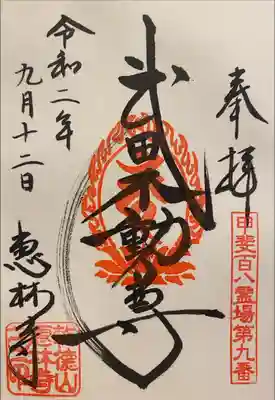 奉拝
甲斐百八霊場第九番
武田不動尊
令和二年
九月十二日
恵林寺
乾徳山
恵林寺